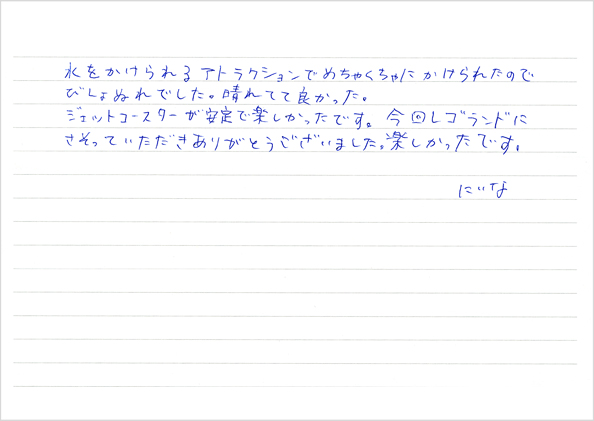 水をかけられるアトラクションでめちゃくちゃにかけられたので
びしょぬれでした。晴れてて良かった。
ジェットコースターが安定で楽しかったです。今回レゴランドに
さそっていただきありがとうございました。楽しかったです。
にいな